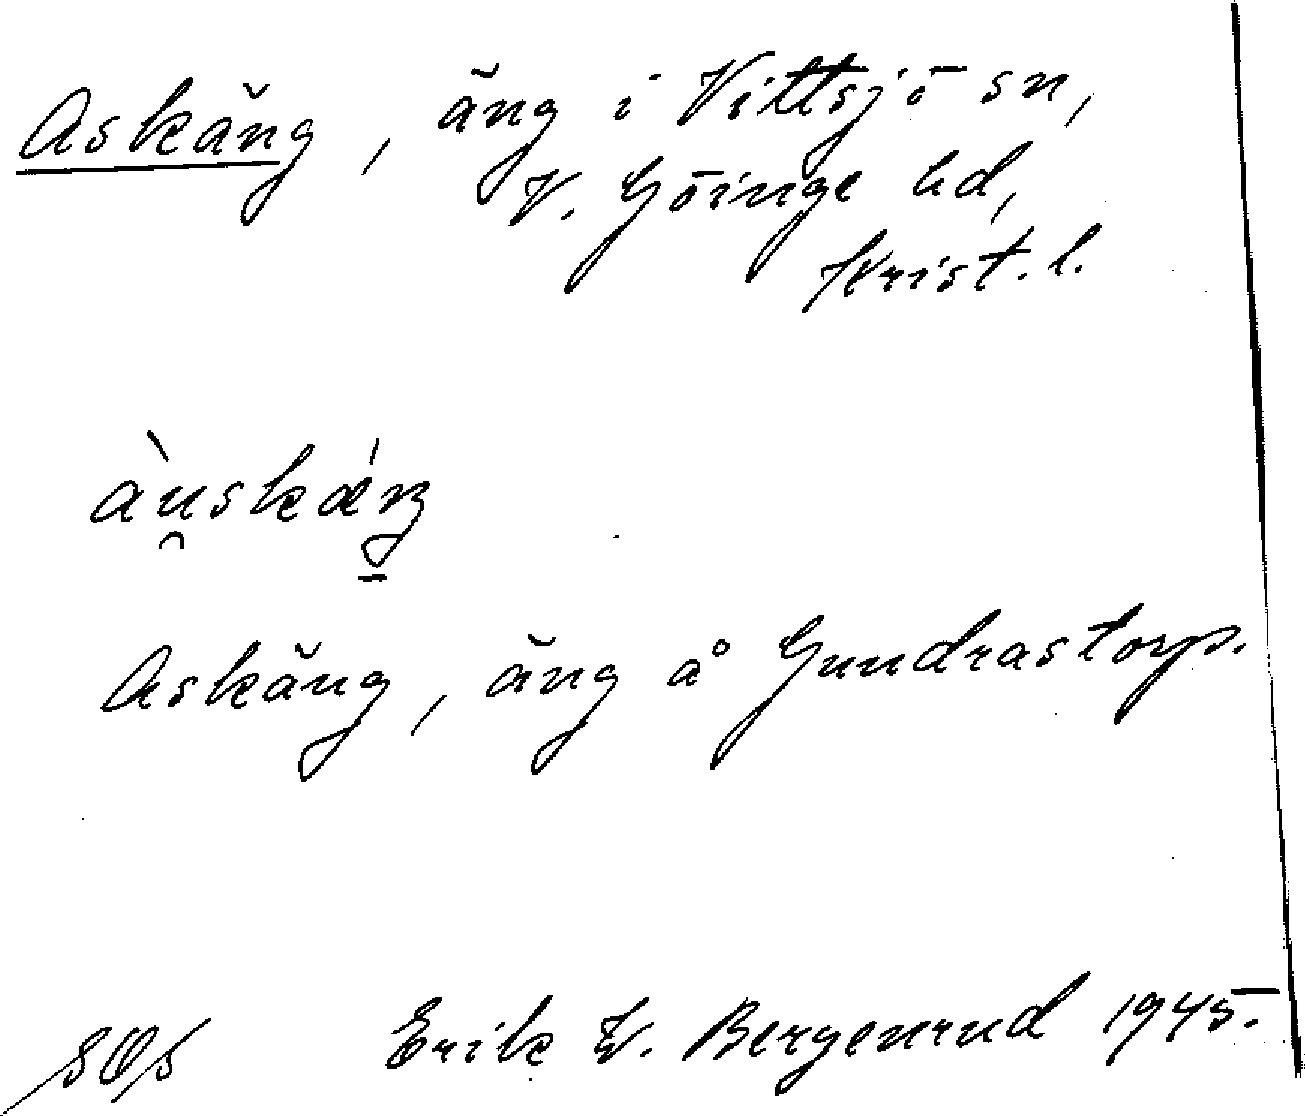 Askäng, äng i Vittsjö sn,
V. Göinge hd,
Krist. l.
àu̯skǽŋ
Askäng, äng å Gundrastorp.
Erik W. Bergenrud 1945.